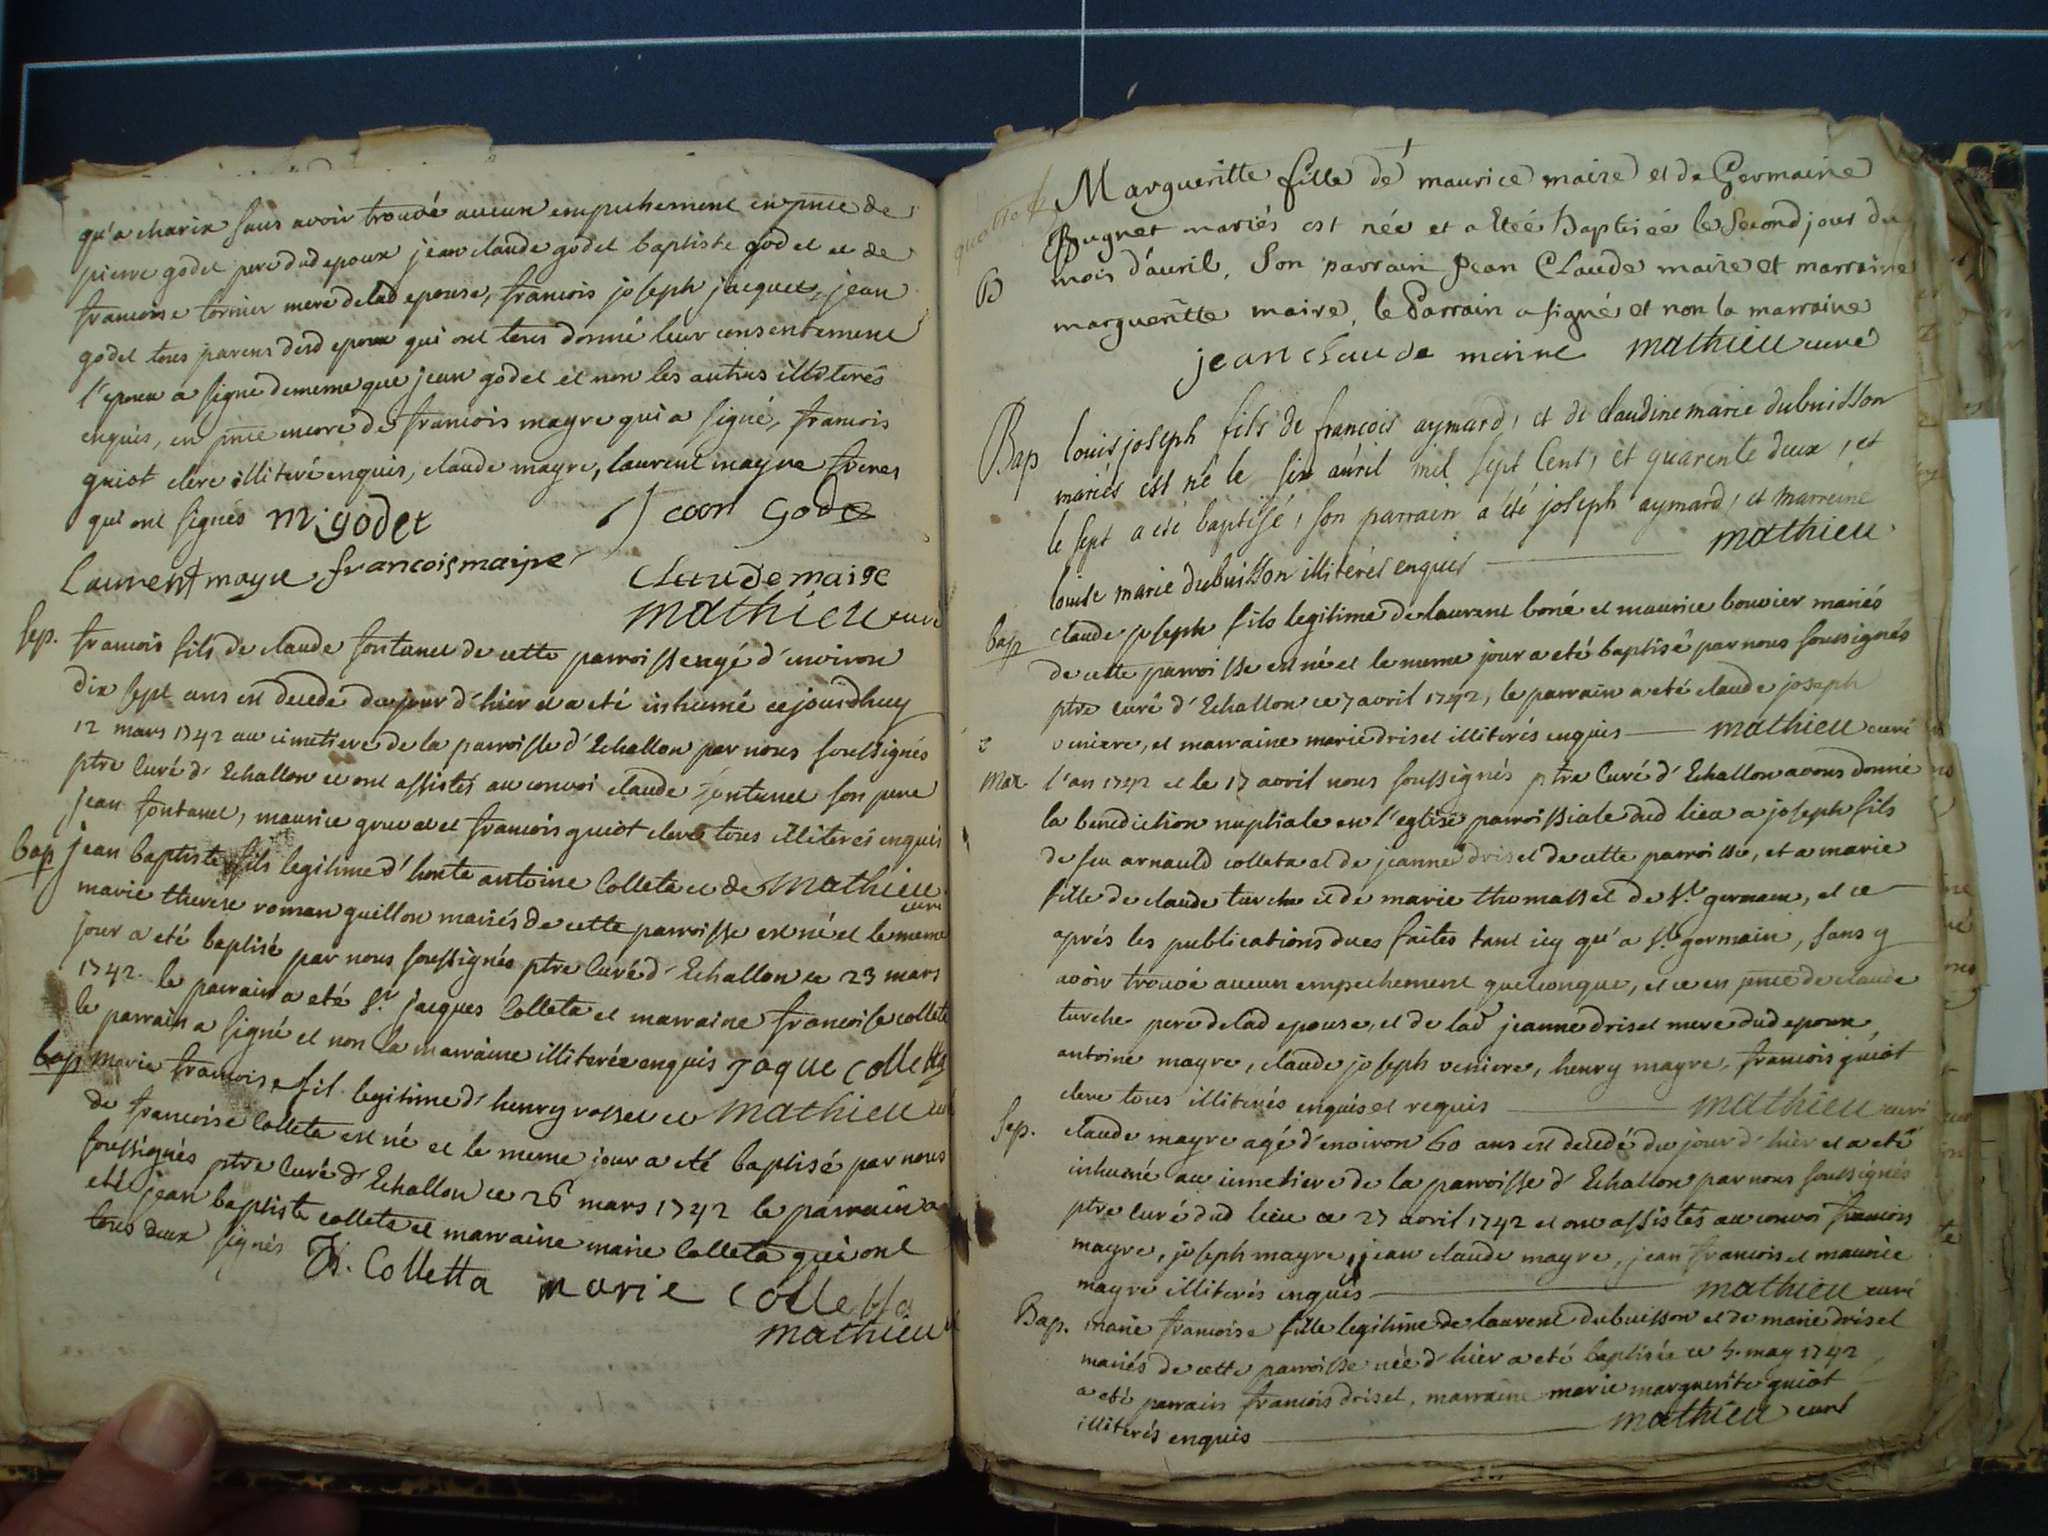 qu'a charix sans avoir trouvé aucun empechement en pnce de
pierre godet pere dud epoux jean claude godet baptiste godet et de
francoise tornier mere de lad epouse, francois joseph jacquet, jean
godet tous parens desd epoux qui ont tous donné leur consentement
l'epoux a signe de meme que jean godet et non les autres illiterés
enquis, en pnce encore de francois mayre qui a signé, francois
guiot clerc illiteré enquis, claude mayre, laurent mayre freres
qui ont signés M. godet Jean Godet
Laurent mayre francois maire
Claude maire
Mathieu curé
Sep. francois fils de claude fontanet de cette parroisse agé d'environ
dix sept ans est decede du jour d'hier et a eté inhumé cejourdhuy
12 mars 1742 au cimetiere de la parroisse d'Echallon par nous soussignés
ptre curé d'Echallon et ont assistés au convoi claude fontanet son pere
jean fontanet, maurice et francois guiot clerc tous illiterés enquis
Mathieu curé
bap jean baptiste fils legitime d'honte antoine Colleta et de
marie therese roman guillon mariés de cette parroisse est né et le meme
jour a eté baptisé par nous soussignés ptre Curé d'Echallon ce 23 mars
1742. le parrain a eté Sr. jacques Colleta et marraine francoise collete
le parrain a signé et non la marraine illiterée enquis Jaque Colletta
Mathieu curé
bap marie francoise fil legitime d'henry rosset et
de francoise Colleta est né et le meme jour a eté baptisé par nous
soussignés ptre Curé d'Echallon ce 26 mars 1742 le parrain a
eté jean baptiste colleta et marraine marie Colleta qui ont
tous deux signés Colletta marie Colletta
Mathieu
Marguerite fille de maurice maire et de Germaine
Bugnet mariés est née et a etée Baptisée le Second jour du
B mois d'avril, Son parrain Jean Claude maire et marraine
marguerite maire, le Parrain a signé et non la marraine
jean claude maire Mathieu curé
Bap louis joseph fils de francois aymard, et de claudine marie dubuisson
mariés est né le six avril mil sept Cent, et quarente deux, et
le sept a eté baptisé, son parrain a eté joseph aymard, et marreine
louise marie dubuisson illiterés enquis Mathieu
bap claude joseph fils legitime de laurent boné et maurice bouvier mariés
de cette parroisse est né et le meme jour a eté baptisé par nous soussignés
ptre curé d'Echallon ce 7 avril 1742, le parrain a eté claude joseph
veniere, et marraine marie driset illiterés enquis Mathieu curé
Mar l'an 1742 et le 17 avril nous soussignés ptre Curé d'Echallon avons donné
la benediction nuptiale en l'eglise parroissiale dud lieu a joseph fils
de feu arnauld colleta et de jeanne driset de cette parroisse, et a marie
fille de claude turche et de marie thomasset de St. germain, et ce
aprés les publications dues faites tant icy qu'a St. germain, sans y
avoir trouvé aucun empechement quelconque, et ce en pnce de claude
turche pere de lad epouse, et de lad jeanne driset mere dud epoux
antoine mayre, claude joseph veniere, henry mayre, francois guiot
clerc tous illiterés enquis et requis Mathieu curé
Sep. claude mayre agé d'environ 60 ans est decedé du jour d'hier et a eté
inhumé au cimetiere de la parroisse d'Echallon par nous soussignés
ptre curé dud lieu ce 27 avril 1742 et ont assistés au convoi francois
mayre, joseph mayre, jean claude mayre, jean francois et maurice
mayre illiterés enquis Mathieu curé
Bap. marie francoise fille legitime de laurent dubuisson et de marie driset
mariés de cette parroisse née d'hier a eté baptisée ce 5. may 1742
a eté parrain francois driset, marraine marie marguerite guiot
illiterés enquis Mathieu curé